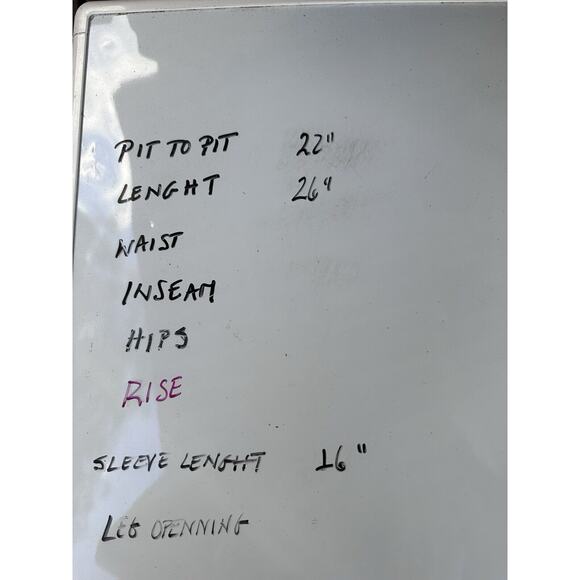 PIT TO PIT 22"
LENGHT 26"
WAIST
INSEAM
HIPS
RISE
SLEEVE LENGHT 16"
LEG OPENNING